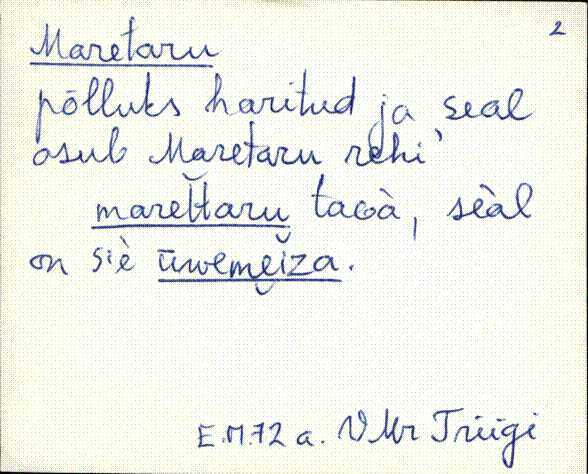 2
Maretaru
põlluks haritud ja seal
osub Maretaru rehi'
marettaru tagà, sèàl
on siè ūwemeiza.
E.M.72 a. VMr Triigi